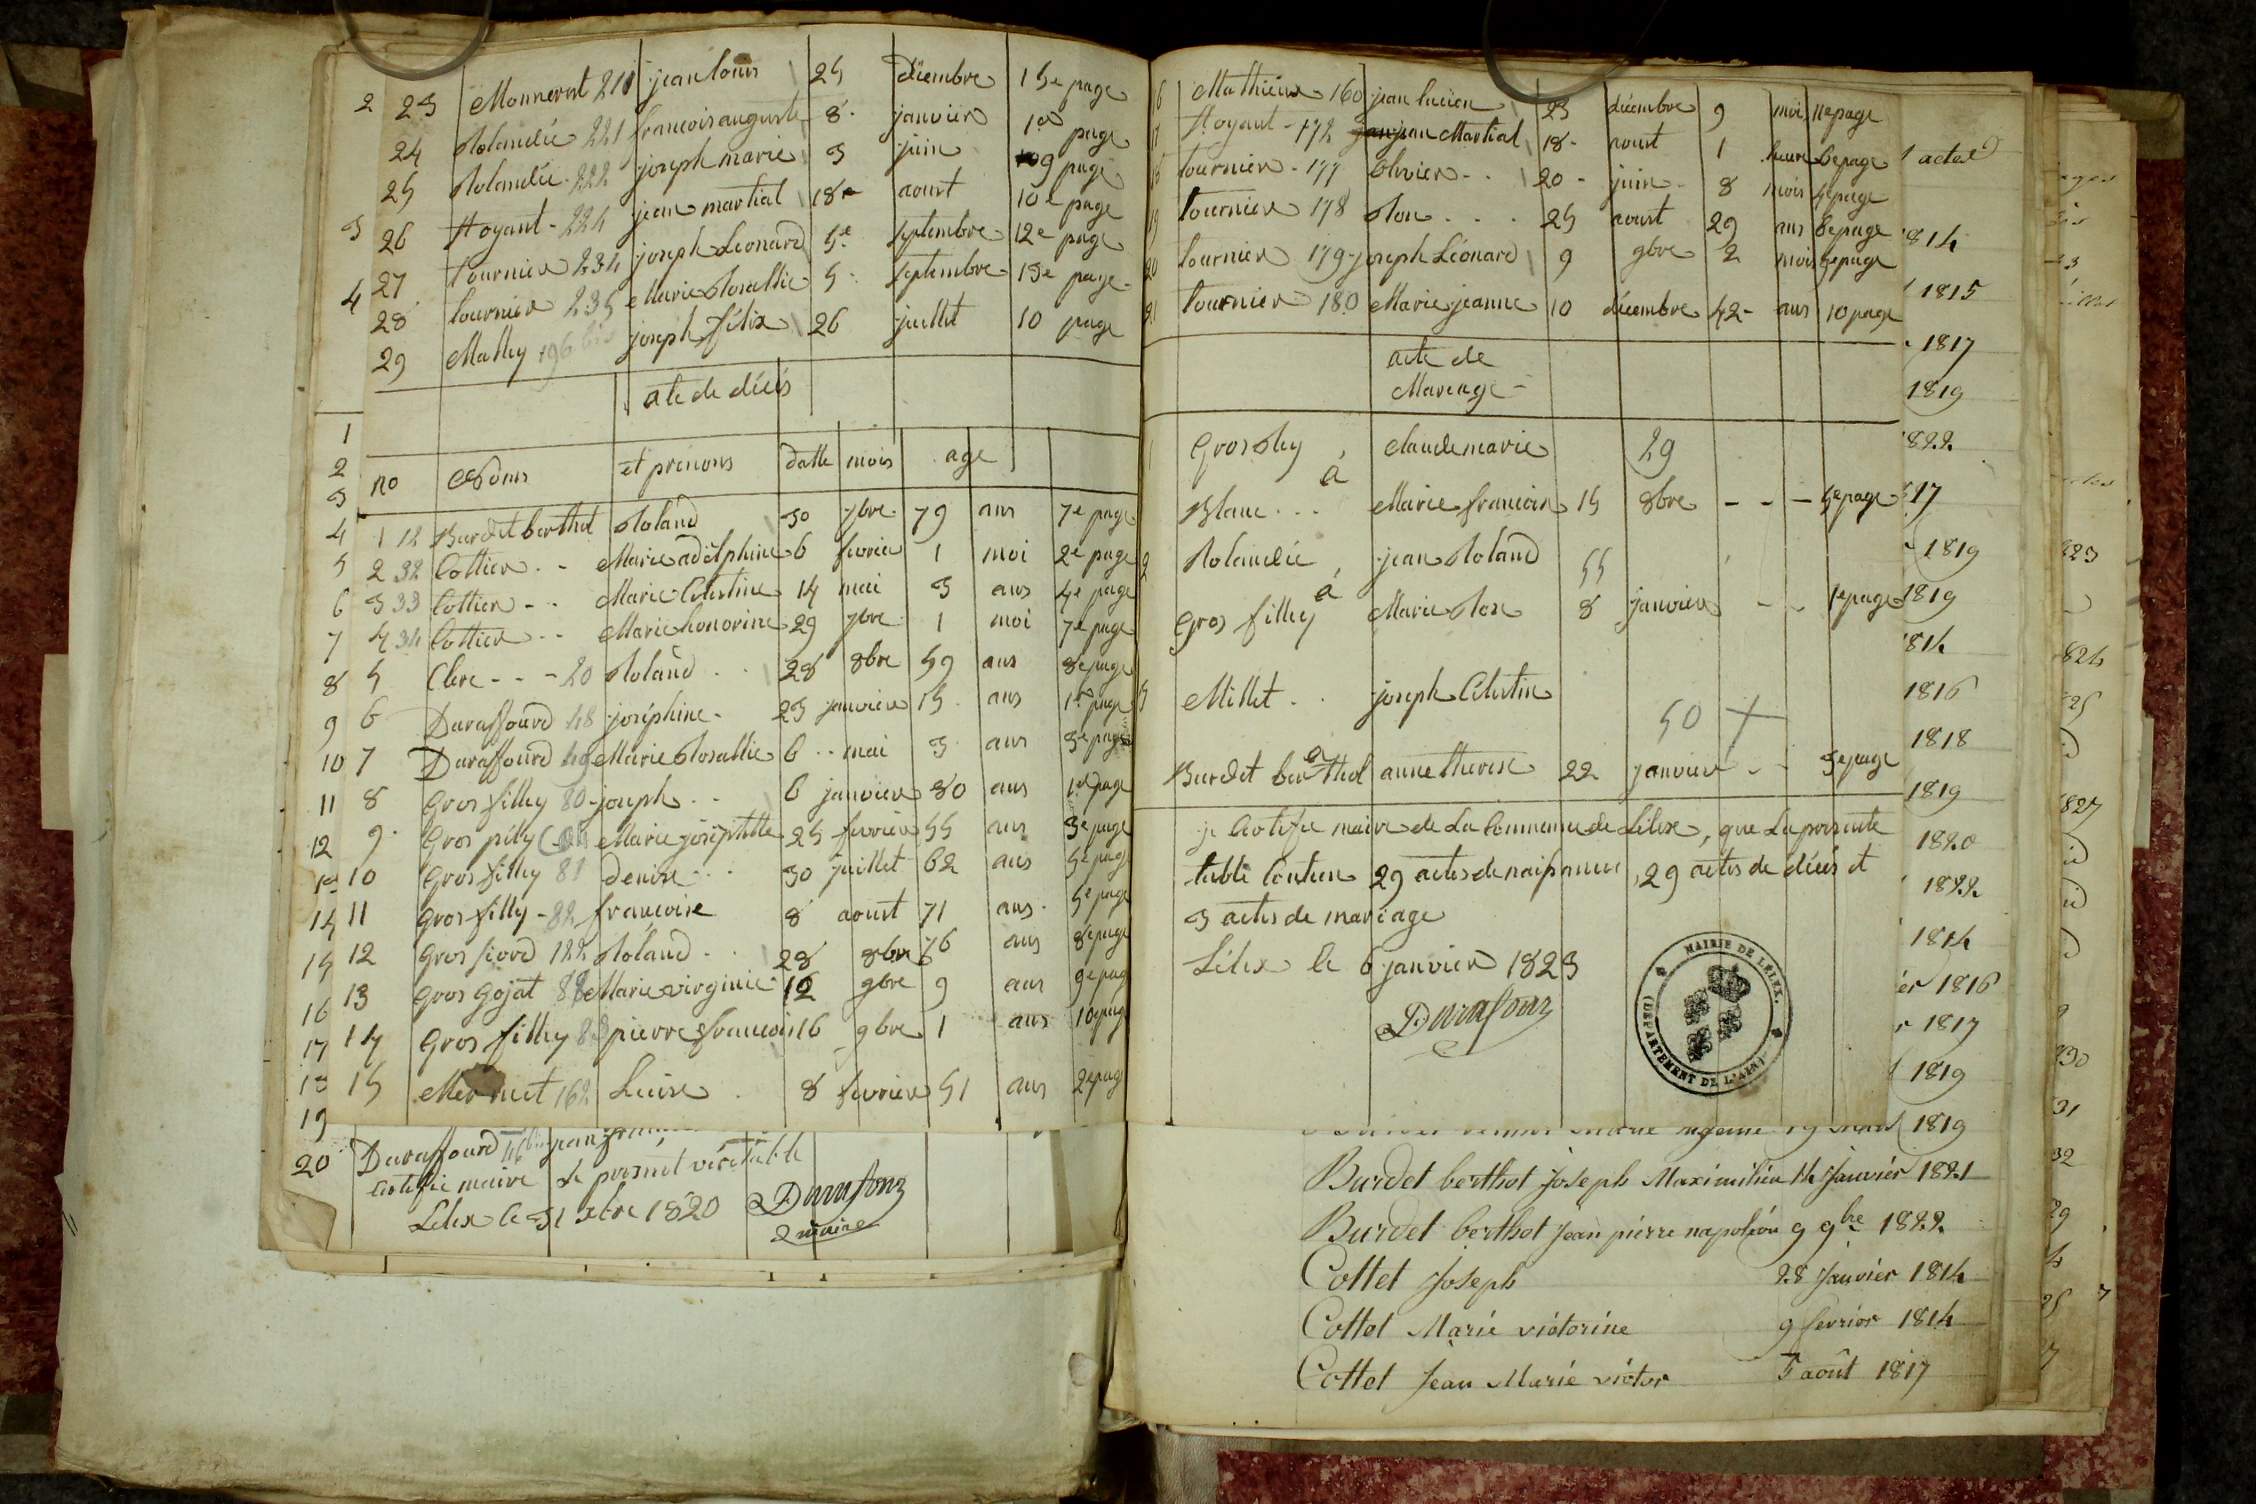 2 23 Monneret 211 jean louis 25 décembre 15e page
24 Rolandéz 221 francois auguste 8 janvier 1ere page
25 Rolandéz 222 joseph marie 3 juin 9 page
3 26 Royant - 224 jean martial 18e aoust 10e page
27 tournier 234 joseph Léonard 5e septembre 12e page
4 28 tournier 235 Marie Rosallie 5 septembre 13e page
29 Mathy 196 bis joseph félix 26 juillet 10 page
ate de décés
no Noms et prenoms datte mois age
1 12 Burdet berthet Roland 30 7bre 79 ans 7e page
2 32 Cottier - - Marie adelphine 6 fevrier 1 moi 2e page
3 33 Cottier - - Marie Celestine 14 mai 3 ans 4e page
4 34 Cottier - - Marie honorine 29 7bre 1 moi 7e page
5 Clerc - - - 20 Roland 28 8bre 59 ans 8e page
6 Duraffourd 48 joséphine - 23 janvier 15 ans 1ere page
7 Duraffourd 49 Marie Rosallie 6 mai 3 ans 3e page
8 Gros filley 80 joseph 6 janvier 30 ans 1ere page
9 Gros pily Marie joséphtte 25 fevrier 55 ans 3e page
10 Gros filley 81 Denise 30 juillet 62 ans 5e page
11 Gros filly - 82 francoise 8 aoust 71 ans 5e page
12 Gros fiord 122 Roland 28 8bre 76 ans 8e page
13 Gros Gojat 88 Marie virginie 12 9bre 9 ans 9e pag
14 Gros filley 83 pierre francois 16 9bre 1 ans 10e pag
15 Mermet 162 Luise 8 fevrier 51 ans 2e pag
1
2
3
4
5
6
7
8
9
10
11
12
13
14
15
16
17
18
19
20 Duraffourd 46 bis jean
Certifie maire le present véritable
Lélex le 31 xbre 1820 Durafour
maire
6 Mathieux 160 jean lucien 23 décembre 9 moi 11e page
17 Royant - 172 jean Martial 18 - aoust 1 heure 6e page
18 tournier - 177 Olivier - - 20 - juin - 8 mois 4e page
19 tournier 178 Rose . . . 25 aoust 29 ans 8e page
20 tournier 179 joseph Léonard 9 9bre 2 mois 9e page
21 tournier 180 Marie jeanne 10 décembre 42 - ans 10 page
acte de
Mareage
1 Gros Rey claude marie 29
à
Blanc . . . Marie francoise 15 8bre - - - 4e page
2 Rolandéz jean Roland 55
à
Gros filley Marie Rose 8 janvier - - 1e page
Millet . . joseph Celestin
50 +
à
Burdet berthet anne therese 22 janvier - - 3e page
je Certifie maire de La Commune de Lélex, que La presente
table Contien 29 actes de naissances, 29 actes de décés et
3 actes de mariage
Lélex le 6 janvier 1823
Durafour
MAIRIE DE LELEX.
(DEPARTEMENT DE L'AIN)
actes
1814
1815
1817
1819
1822
17
1819
1819
1814
1816
1818
1819
1820
1822
1814
1816
1817
1819
1819
Burdet berthet Joseph Maximilien 14 Janvier 1821
Burdet berthet Jean pierre napoléon 9 9bre 1822
Cottet Joseph 28 Janvier 1814
Cottet Marie victorine 9 fevrier 1814
Cottet Jean Marie victor 5 août 1817